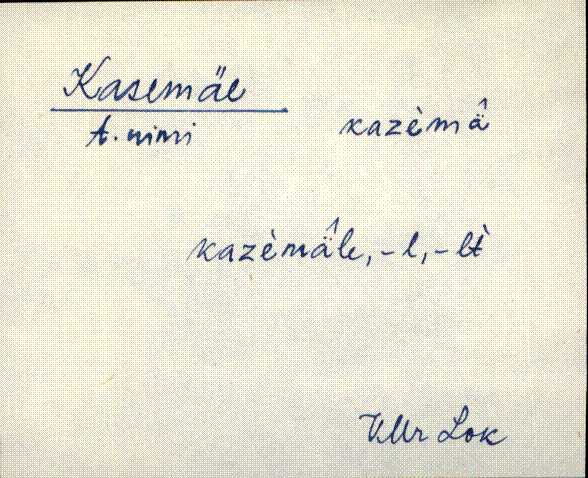 Kasemäe
t. nimi
kazèmä̂
kazèmä̂le, -l, -lt̀
VMr Lok